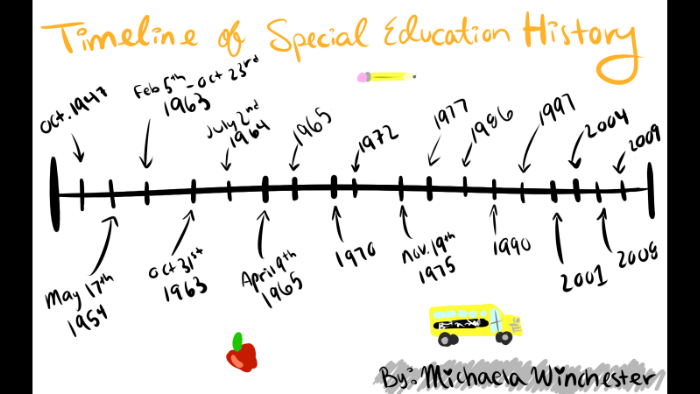 Timeline of Special Education History
Oct. 1947
Feb 5th - Oct 23rd
1963
July 2nd
1964
1965
1972
1977
1986
1997
2004
2009
May 17th
1954
Oct 31st
1963
April 9th
1965
1970
Nov. 19th
1975
1990
2001
2008
By: Michaela Winchester